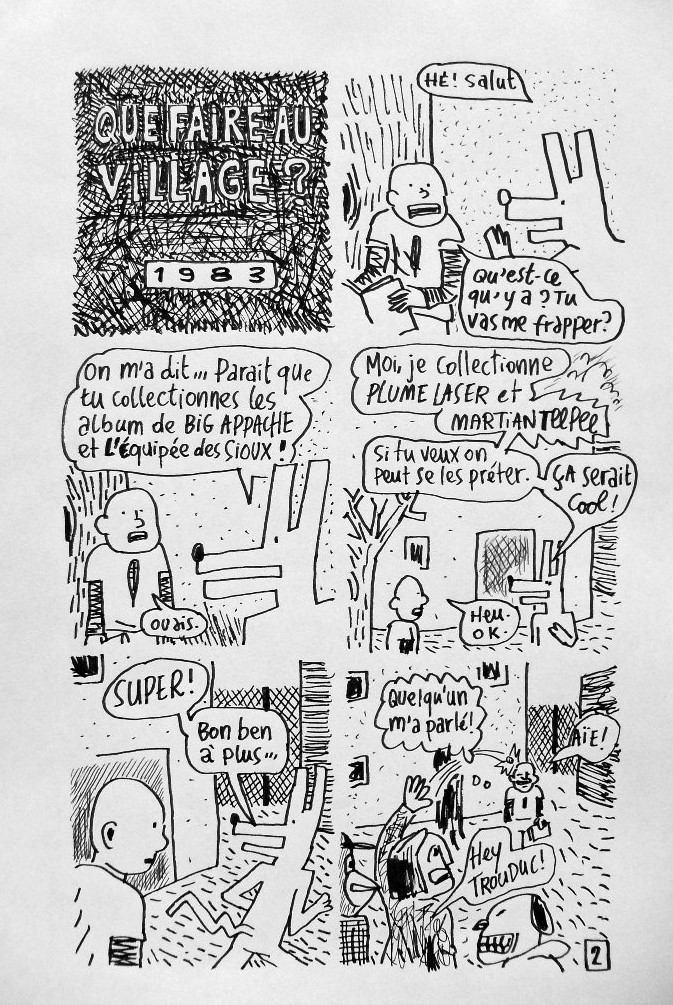 QUE FAIRE AU
VILLAGE ?
1983
HÉ! Salut
Qu'est-ce
qu'y a ? Tu
vas me frapper?
On m'a dit... Parait que
tu collectionnes les
album de BIG APPACHE
et L'Équipée des Sioux !
Ouais.
Moi, je collectionne
PLUME LASER et
MARTIAN TEEPEE
Si tu veux on
peut se les préter.
ÇA serait
Cool !
Heu.
OK.
SUPER!
Bon ben
à plus...
Quelqu'un
m'a parlé!
Aïe!
Hey
TROUDUC!
2